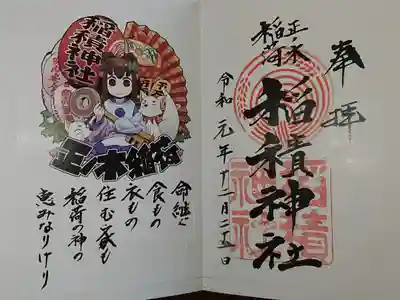 奉拝
正ノ木
稲荷
稲積神社
令和元年十二月二五日
稲積神社
正ノ木稲荷
命継ぐ
食もの
衣もの
住む家も
稲荷の神の
恵みなりけり